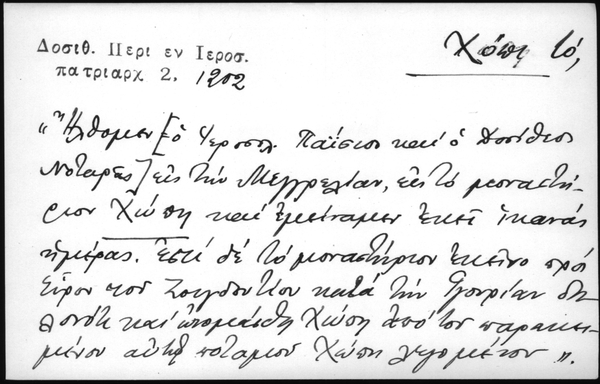 Δοσιθ. Περι εν Ιεροσ.
πατριαρχ 2, 1202
Χόπι, τό,
"Ἤλθομεν [ὁ Ἱεροσολ. Παΐσιος καὶ ὁ Δοσίθεος
Νοταρᾶς] εἰς τὴν Μεγγρελίαν, εἰς τὸ μοναστή-
ριον Χώπη καὶ ἐμείναμεν ἐκεῖ ἱκανὰς
ἡμέρας. ἔστι δὲ τὸ μοναστήριον ἐκεῖνο πρὸς
Εὖρον τοῦ κατὰ τὴν Γουρίαν δη-
λονότι καὶ ὠνομάσθη Χώπη ἀπὸ τοῦ παρακει-
μένου αὐτῷ ποταμοῦ Χώπη λεγομένου".